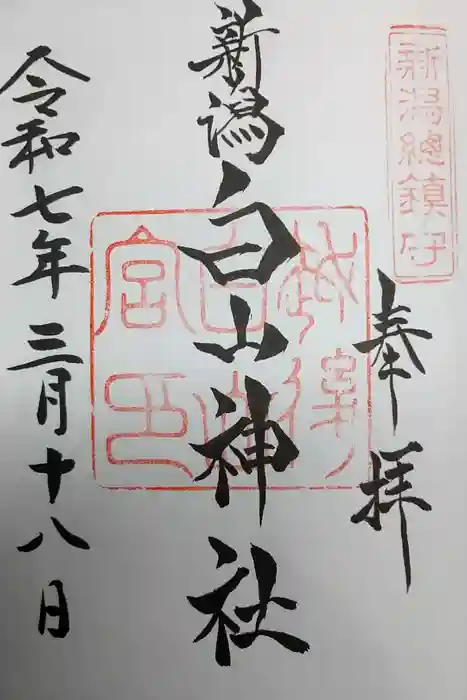 新潟總鎮守
奉拝
新潟白山神社
越後
白山
宮印
令和七年三月十八日